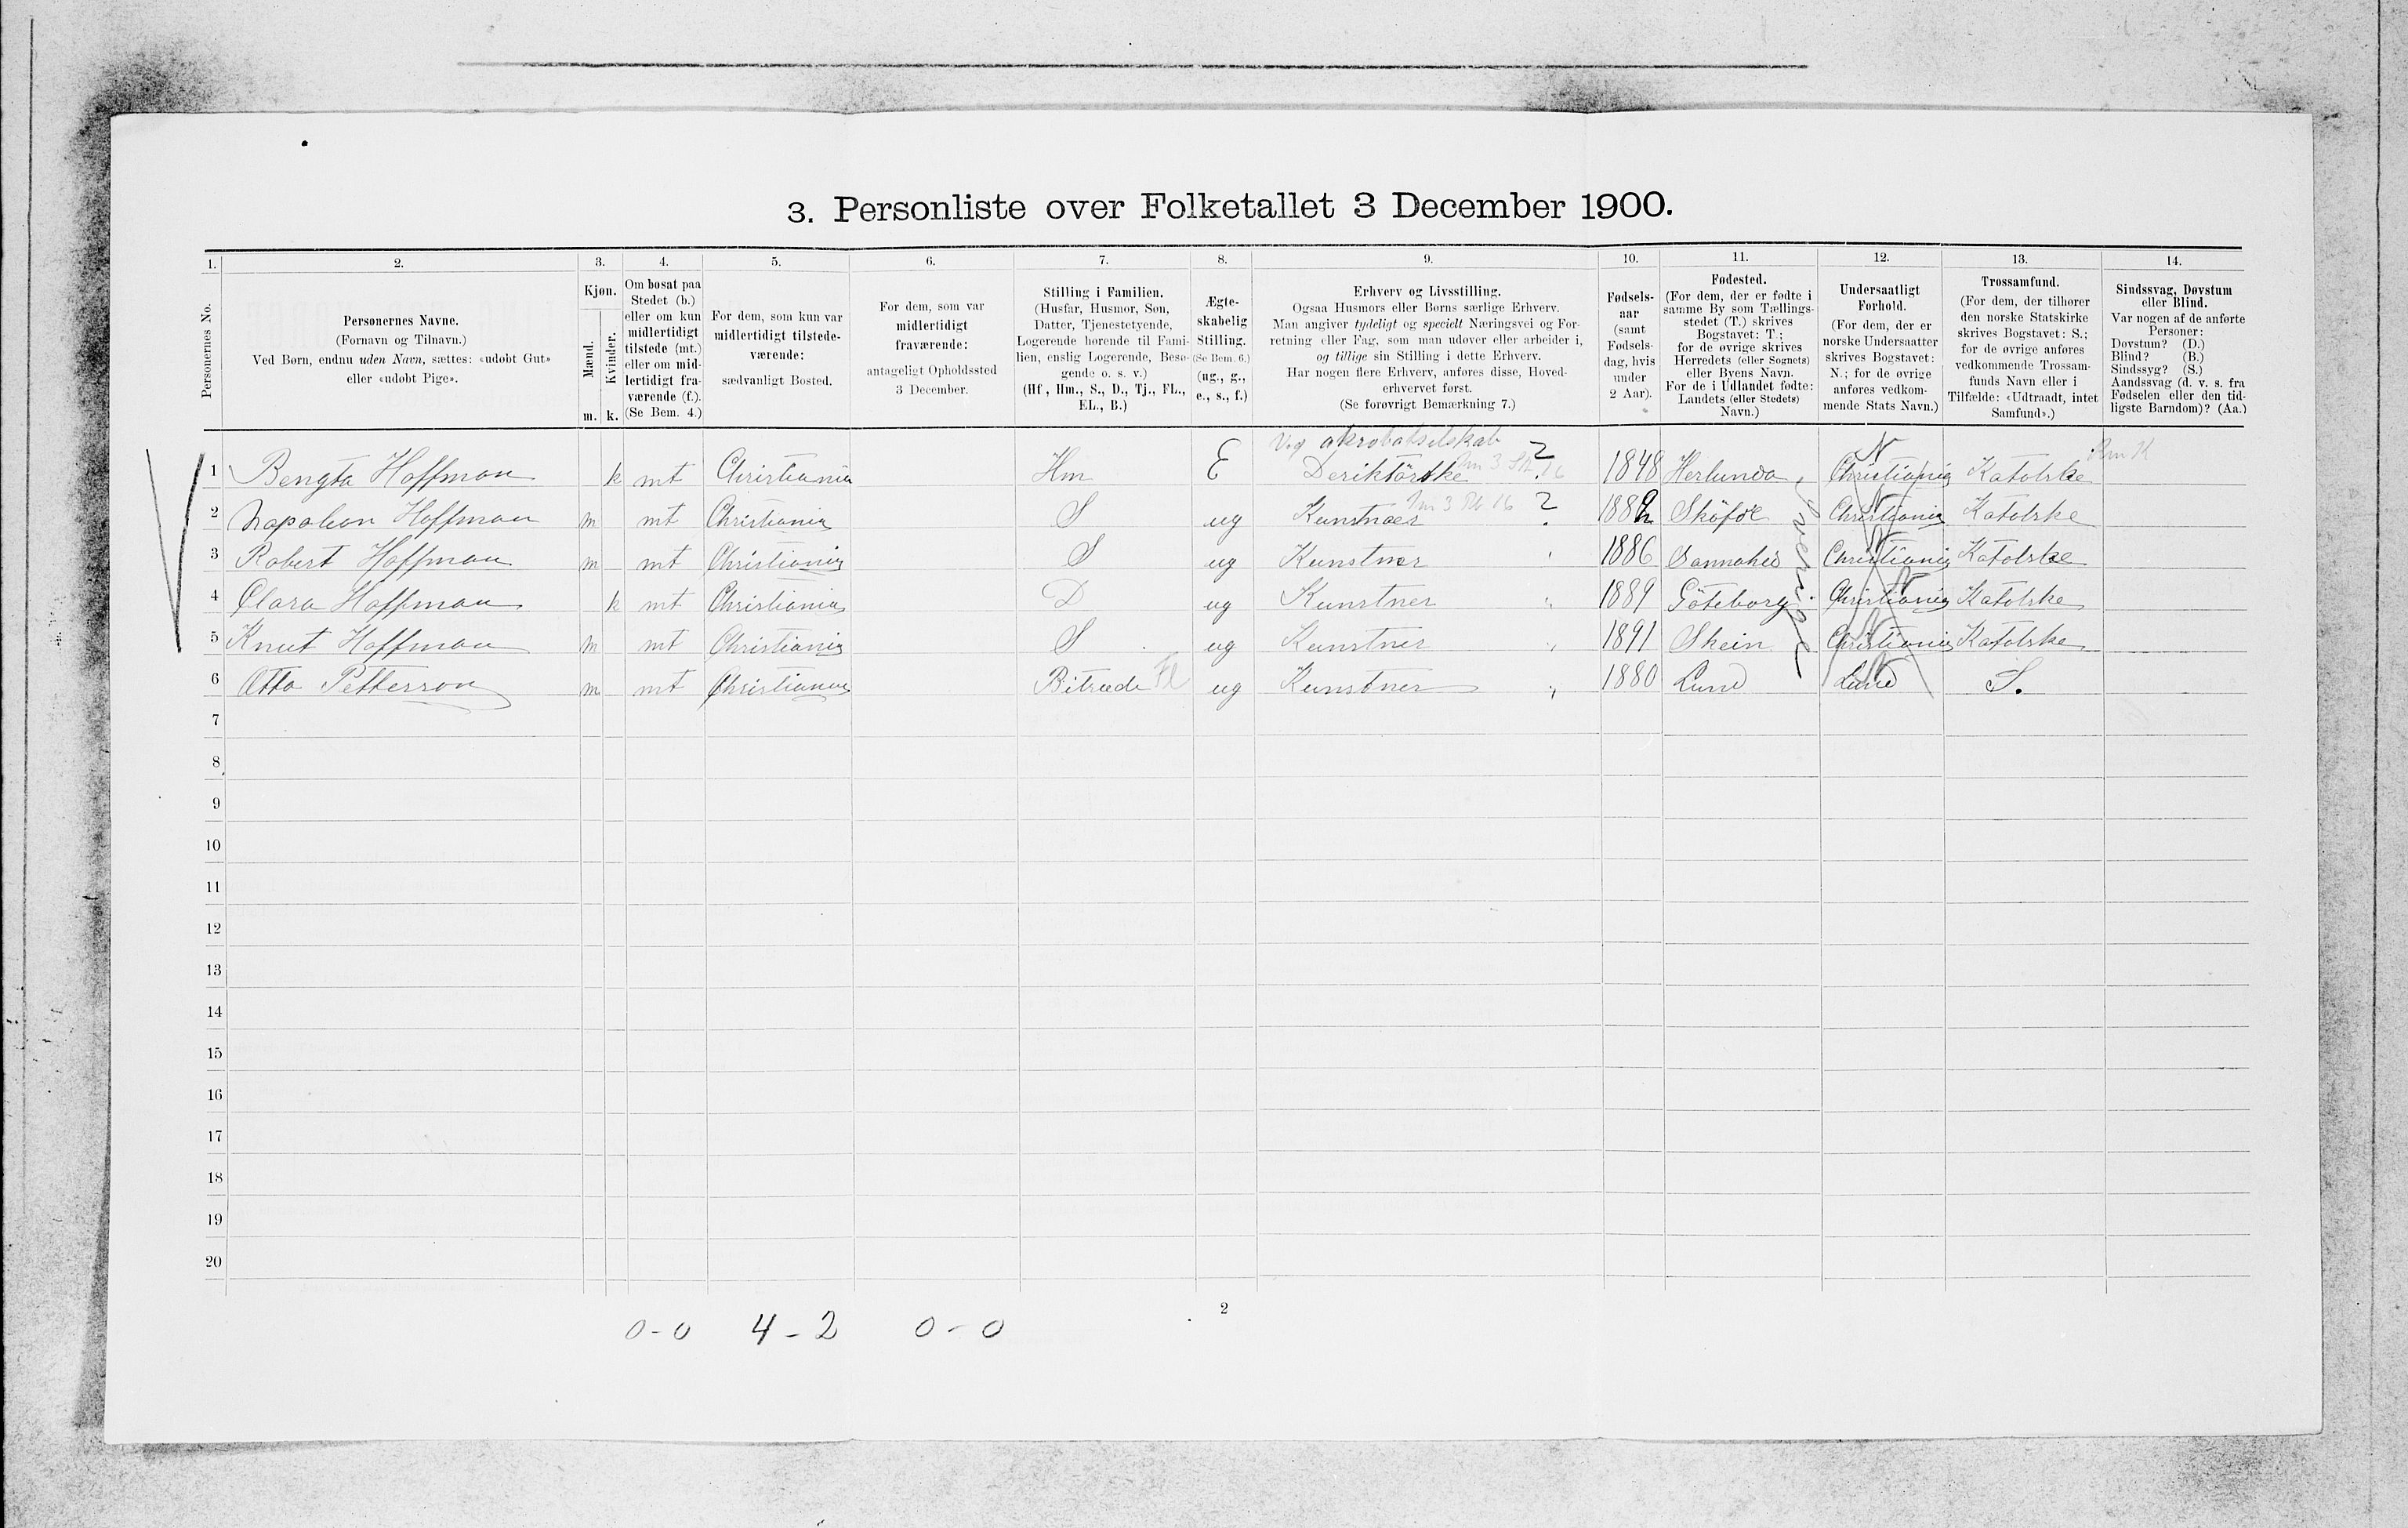 3. Personliste over Folketallet 3 December 1900.
1. 2. 3. 4. 5. 6. 7. 8. 9. 10. 11. 12. 13. 14.
Personernes No.
Personernes Navne.
(Fornavn og Tilnavn.)
Ved Børn, endnu uden Navn, sættes: «udøbt Gut»
eller «udøbt Pige».
Kjøn.
Mænd.
Kvinder.
m. k.
Om bosat paa
Stedet (b.)
eller om kun
midlertidigt
tilstede (mt.)
eller om mid-
lertidigt fra-
værende (f.).
(Se Bem. 4.)
For dem, som kun var
midlertidigt tilstede-
værende:
sædvanligt Bosted.
For dem, som var
midlertidigt
fraværende:
antageligt Opholdssted
3 December.
Stilling i Familien.
(Husfar, Husmor, Søn,
Datter, Tjenestetyende,
Logerende hørende til Fami-
lien, enslig Logerende, Besø-
gende o. s. v.)
(Hf., Hm., S., D., Tj., FL.,
EL., B.)
Ægte-
skabelig
Stilling.
(Se Bem. 6.)
(ug., g.,
e., s., f.)
Erhverv og Livsstilling.
Ogsaa Husmors eller Børns særlige Erhverv.
Man angiver tydeligt og specielt Næringsvei og For-
retning eller Fag, som man udøver eller arbeider i,
og tillige sin Stilling i dette Erhverv.
Har nogen flere Erhverv, anføres disse, Hoved-
erhvervet først.
(Se forøvrigt Bemærkning 7.)
Fødsels-
aar
(samt
Fødsels-
dag, hvis
under
2 Aar).
Fødested.
(For dem, der er fødte i
samme By som Tællings-
stedet (T.) skrives
Bogstavet: T.;
for de øvrige skrives
Herredets (eller Sognets)
eller Byens Navn.
For de i Udlandet fødte:
Landets (eller Stedets)
Navn.)
Undersaatligt
Forhold.
(For dem, der er
norske Undersaatter
skrives Bogstavet:
N.; for de øvrige
anføres vedkom-
mende Stats Navn.)
Trossamfund.
(For dem, der tilhører
den norske Statskirke
skrives Bogstavet: S.;
for de øvrige anføres
vedkommende Trossam-
funds Navn eller i
Tilfælde: «Udtraadt, intet
Samfund».)
Sindssvag, Døvstum
eller Blind.
Var nogen af de anførte
Personer:
Døvstum? (D.)
Blind? (B.)
Sindssyg? (S.)
Aandssvag (d. v. s. fra
Fødselen eller den tid-
ligste Barndom)? (Aa.)
Ved akrobatselskab ? N Rm K
1 Bengta Hoffman k mt Christiania Hm E Deriktörske 1848 Herlunda, Christiania Katolske
2 Napoleon Hoffman m mt Christiania S ug Kunstnaer ? 1882 Sköfde Christiania N Katolske
3 Robert Hoffman m mt Christiania S ug Kunstner 1886 Sannahed Christiania N Katolske
4 Clara Hoffman k mt Christiania D ug Kunstner " 1889 Göteborg Christiania N Katolske
5 Knut Hoffman m mt Christiania S ug Kunstner " 1891 Skein Christiania N Katolske
6 Otto Petterson m mt Christiania Bitræde Fl ug Kunstner " 1880 Lund Lund N S.
Sverige
7
8
9
10
11
12
13
14
15
16
17
18
19
20
2
0-0 4-2 0-0